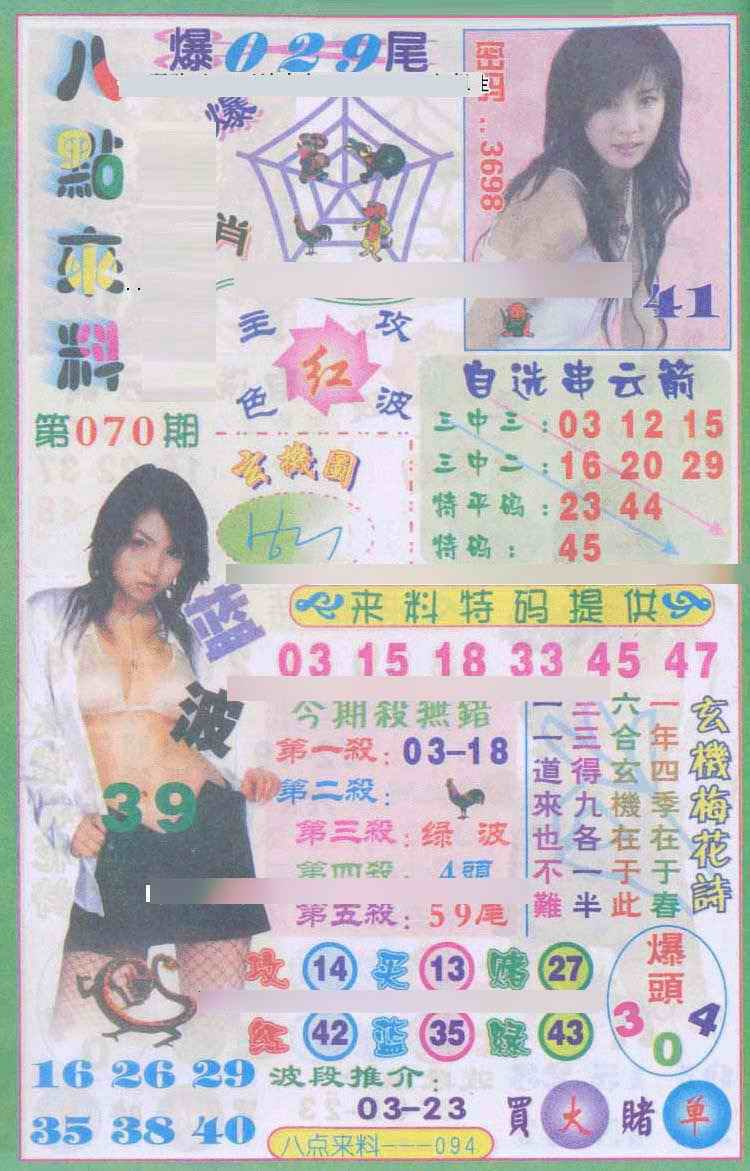 八點來料
爆029尾
爆
肖
密码:3698
41
主攻
红
色波
第070期
玄機圖
自选串云箭
三中三:03 12 15
三中二:16 20 29
特平码:23 44
特码:45
来料特码提供
03 15 18 33 45 47
蓝波
39
今期殺無錯
第一殺:03-18
第二殺:
第三殺:绿波
第四殺:4頭
第五殺:59尾
玄機梅花詩
一年四季在于春
六合玄機在于此
二三得九各一半
一一道來也不難
攻 14 买 13 赌 27
红 42 蓝 35 绿 43
爆頭
3 0 4
16 26 29
35 38 40
波段推介:
03-23
買大賭单
八点来料---094